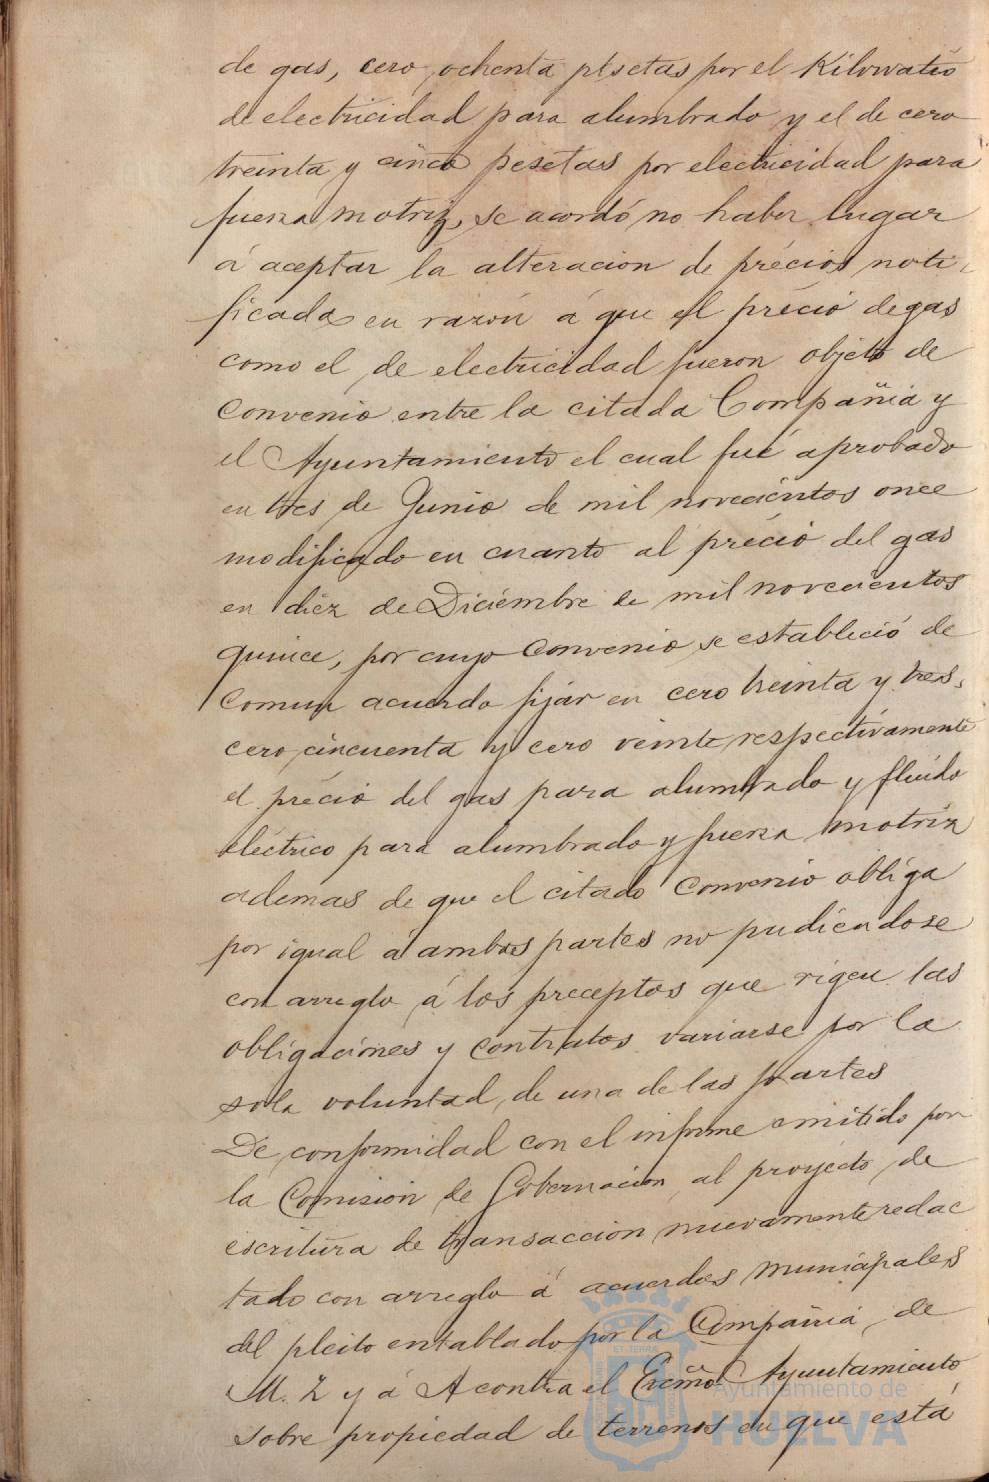 de gas, cero, ochenta ptsetas por el Kilowatio
de electricidad para alumbrado y el de cero
treinta y cinco pesetas por electricidad para
fuerza motriz, se acordó no haber lugar
á aceptar la alteracion de précios noti-
ficada en razón á que el précio de gas
como el de electricidad fueron objeto de
Convenio entre la citada Compañia y
el Ayuntamiento el cual fué aprobado
en tres de Junio de mil novecientos once
modificado en cuanto al précio del gas
en diez de Diciembre de mil novecientos
quince, por cuyo Convenio se estableció de
comun acuerdo fijar en cero treinta y tres,
cero cincuenta y cero veinte respectivamente
el précio del gas para alumbrado y fluido
eléctrico para alumbrado y fuerza motriz
ademas de que el citado Convenio obliga
por igual á ambas partes no pudiendose
con arreglo á los preceptos que rigen las
obligaciones y contratos variarse por la
sola voluntad, de una de las partes
De conformidad con el informe emitido por
la Comision de Gobernacion, al proyecto de
escritura de transaccion nuevamente redac
tado con arreglo á acuerdos municipales
del pleito entablado por la Compañia, de
M. Z y á A contra el Excmo Ayuntamiento
sobre propiedad de terrenos en que está
Ayuntamiento de
HUELVA